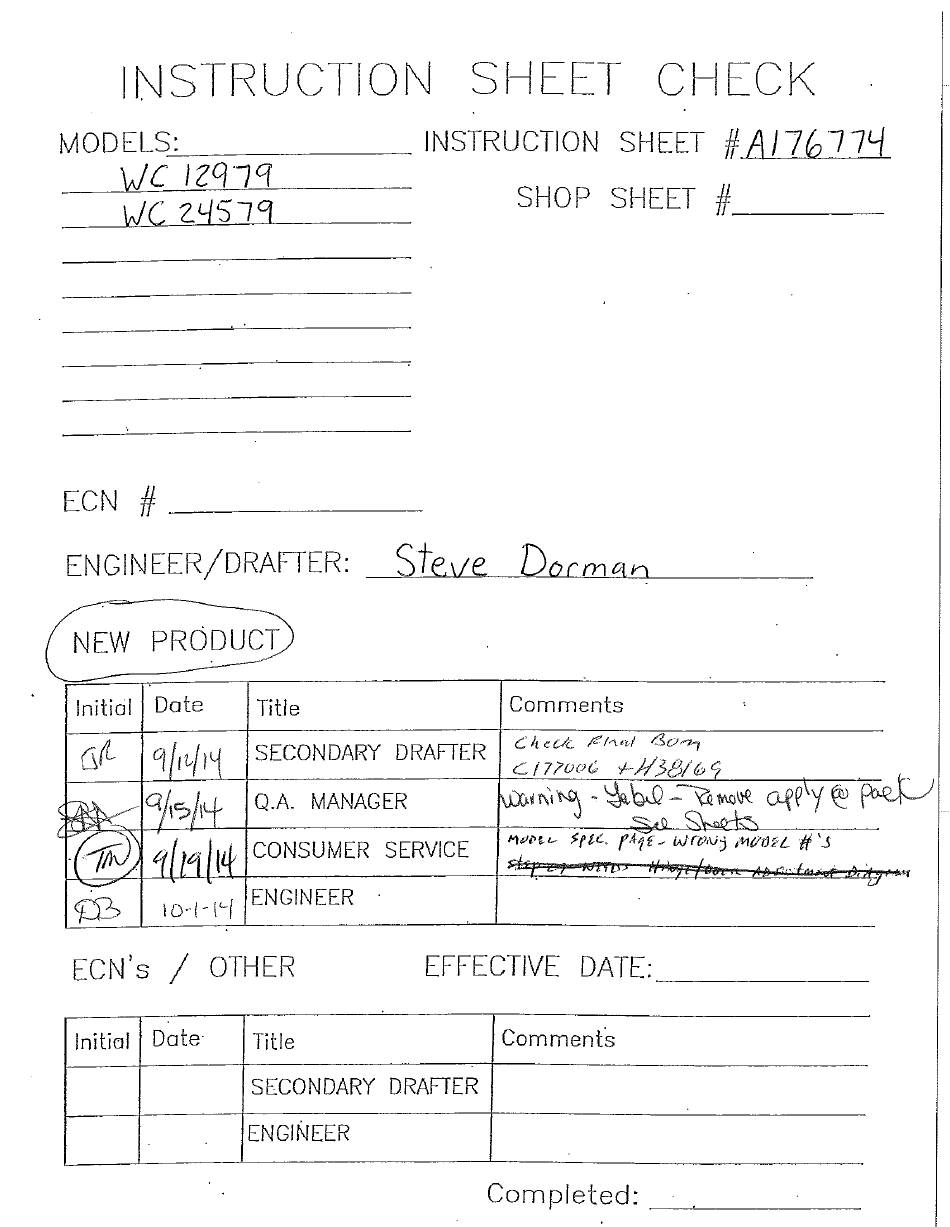 INSTRUCTION SHEET CHECK
MODELS: INSTRUCTION SHEET #A176774
WC 12979
SHOP SHEET #
WC 24579
ECN #
ENGINEER/DRAFTER: Steve Dorman
NEW PRODUCT
Initial Date Title Comments
9/12/14 SECONDARY DRAFTER Check Final Bom
C177006 + H38169
9/15/14 Q.A. MANAGER Warning - Label - Remove apply @ pack
See Sheets
TM 9/19/14 CONSUMER SERVICE MODEL SPEC. PAGE - WRONG MODEL #'S
DB 10-1-14 ENGINEER
ECN's / OTHER EFFECTIVE DATE:
Initial Date Title Comments
SECONDARY DRAFTER
ENGINEER
Completed: